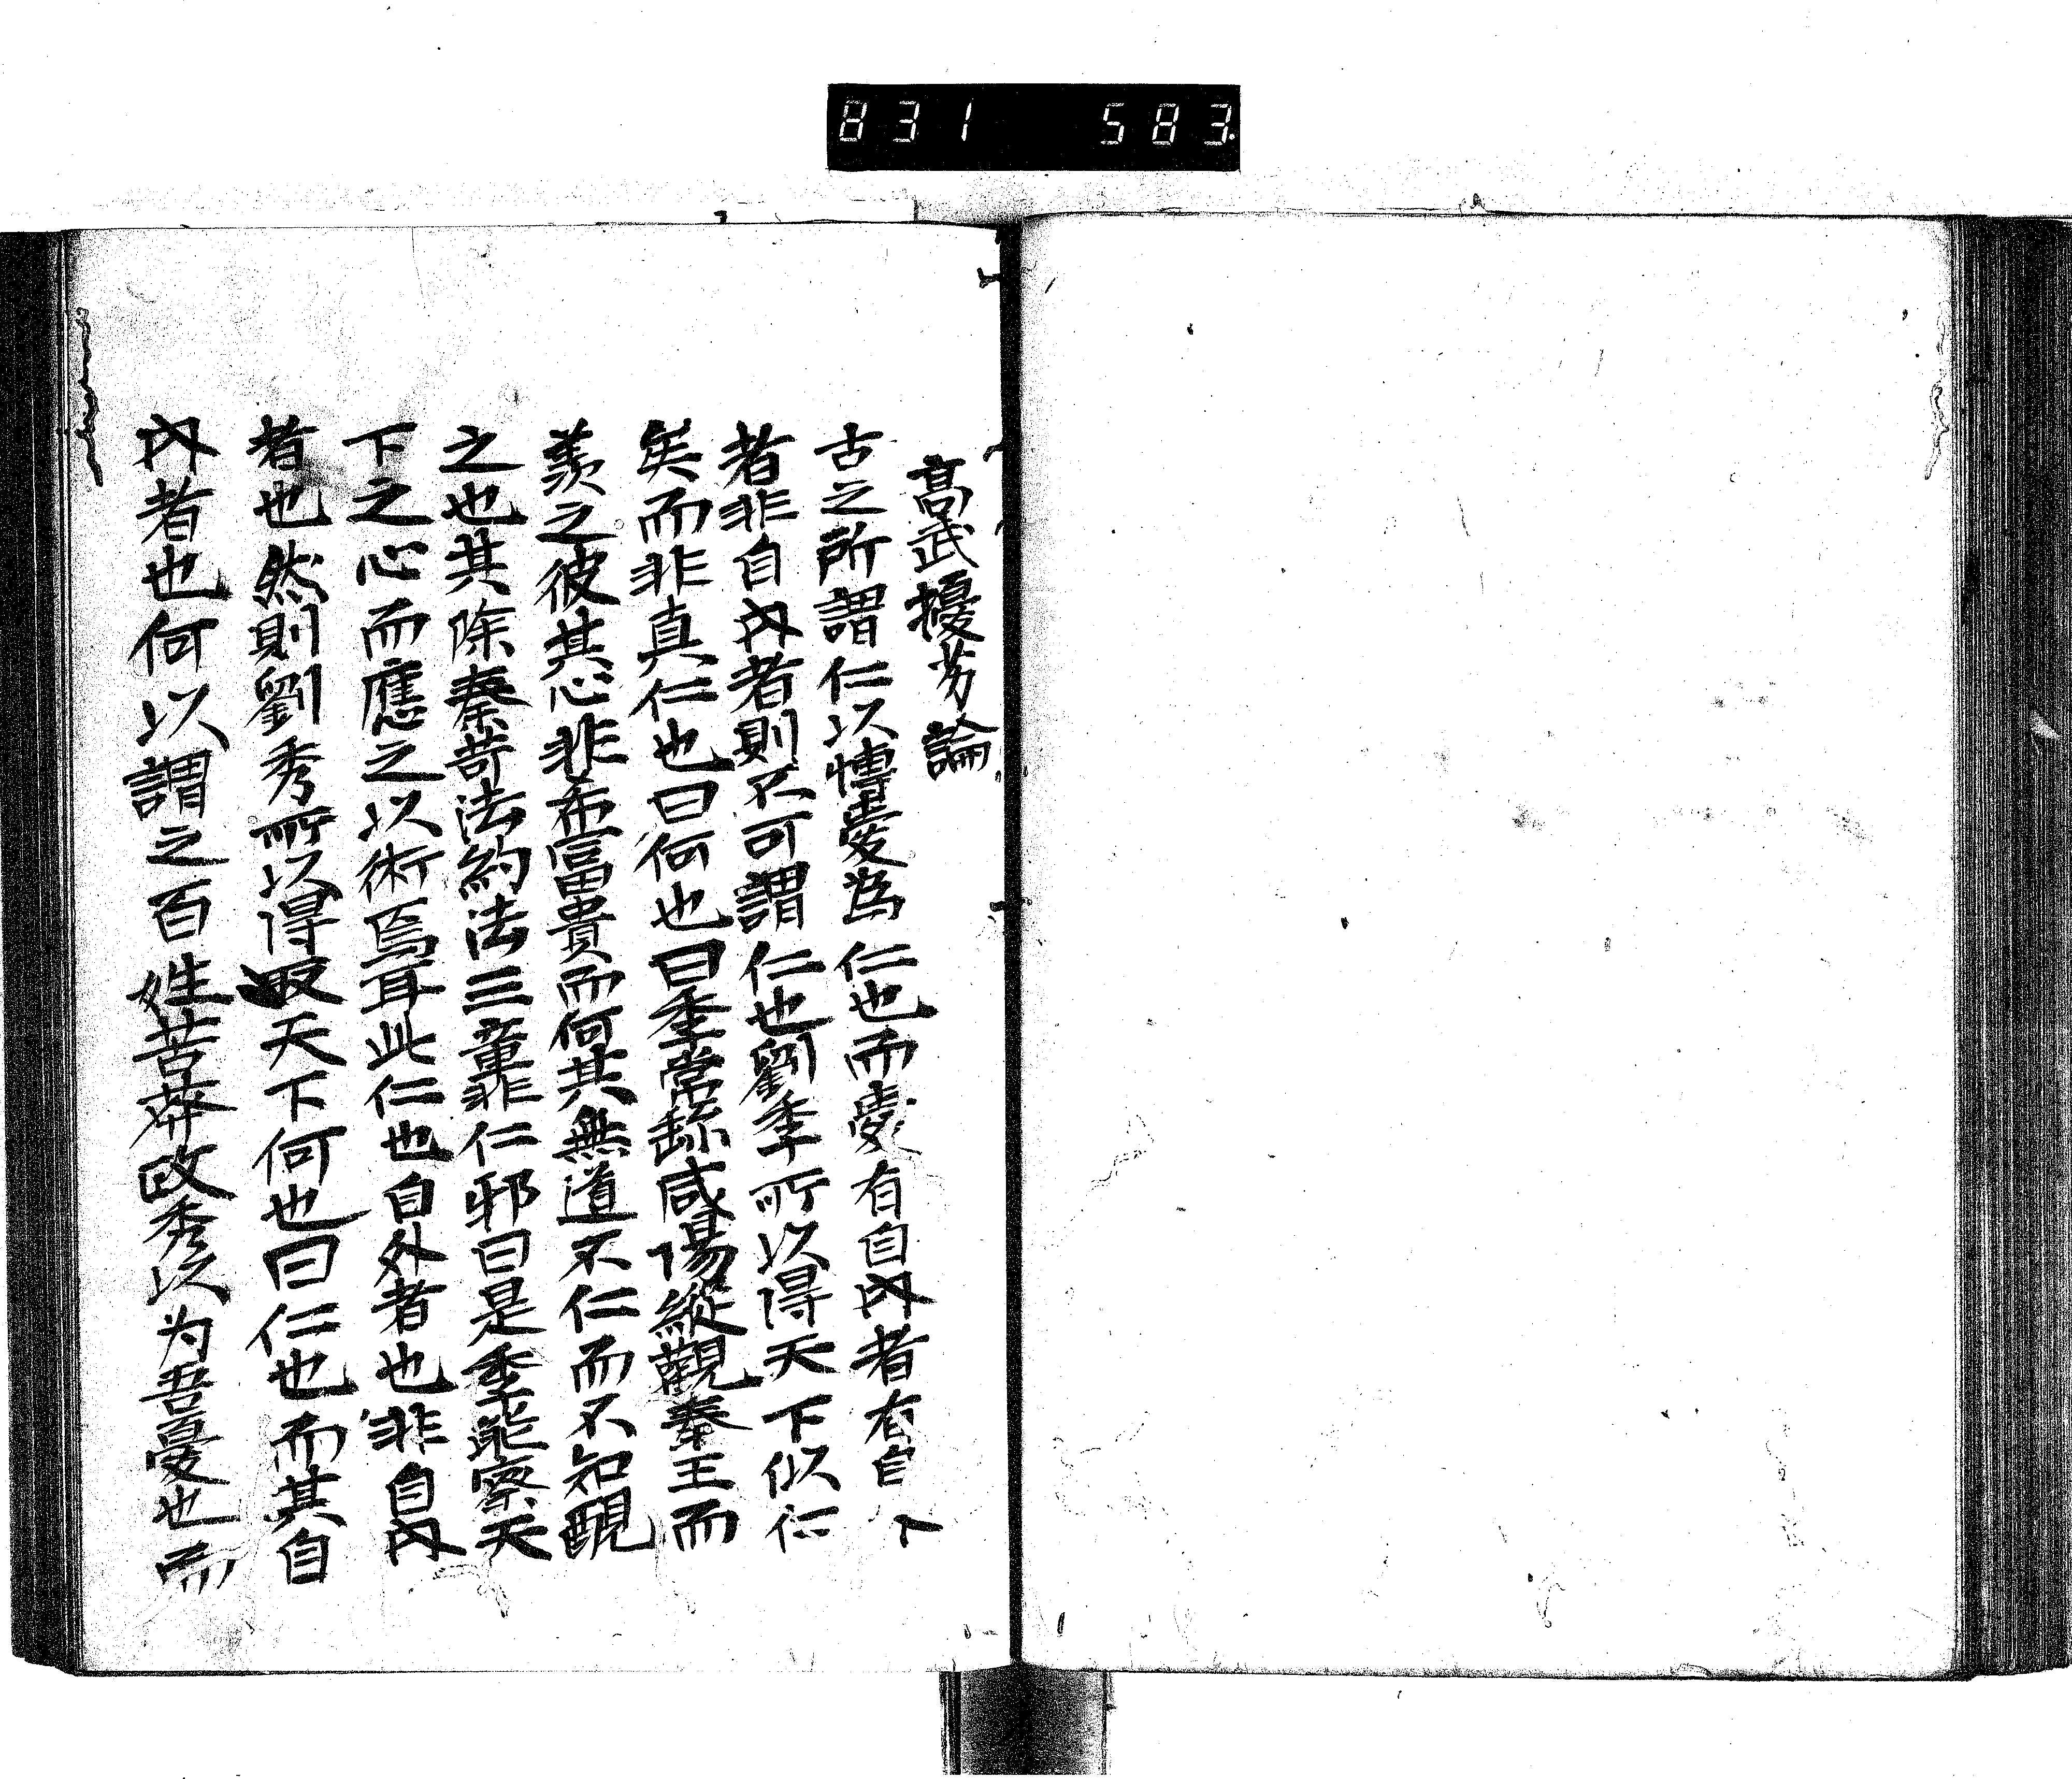 831 583
高武擾芳論
古之所謂仁以博愛為仁也而愛有自內者有自
者非自內者則不可謂仁也劉季所以得天下似仁
矣而非真仁也曰何也曰季常繇咸陽縱觀秦王而
羨之彼其心非希富貴而何其無道不仁而不知覩
之也其除秦苛法約法三章非仁邪曰是季能察天
下之心而應之以術焉耳此仁也自外者也非自內
者也然則劉秀所以得取天下何也曰仁也而其自
內者也何以謂之百姓苦莽政秀以为吾憂也而